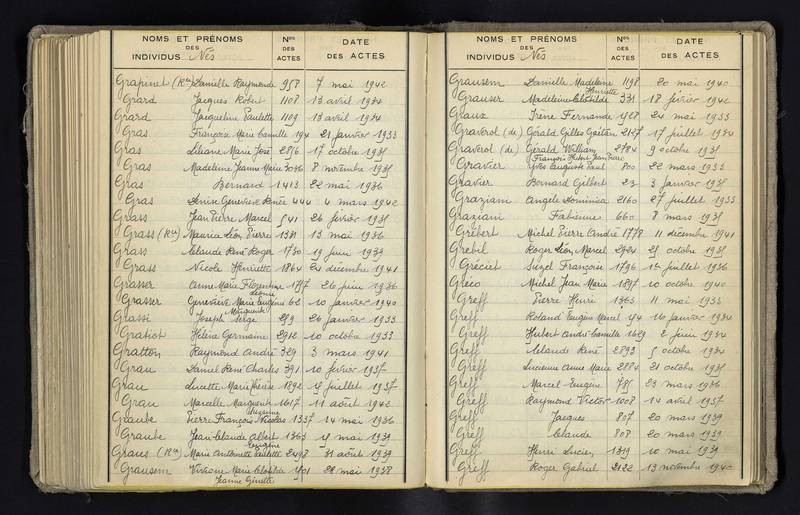 NOMS ET PRÉNOMS DES INDIVIDUS Nés | Nos DES ACTES | DATE DES ACTES
Grapinet (Rn) Danielle Raymonde 958 7 mai 1942
Grard Jacques Robert 1108 13 avril 1934
Grard Jacqueline Paulette 1109 13 avril 1934
Gras Françoise Marie Camille 194 21 janvier 1933
Gras Liliane Marie José 2816 17 octobre 1931
Gras Madeleine Jeanne Marie 3036 8 novembre 1931
Gras Bernard 1413 22 mai 1936
Gras Denise Geneviève Renée 444 4 mars 1942
Grass Jean Pierre Marcel 541 26 février 1931
Grass (Rn) Maurice Léon Pierre 1331 13 mai 1936
Grass Claude René Roger 1730 19 juin 1939
Grass Nicole Henriette 1864 24 décembre 1941
Grasser Anne Marie Florentine Léonie 1757 26 juin 1936
Grasser Geneviève Marie Eugénie Marguerite 62 10 janvier 1940
Grassi Joseph Serge 259 26 janvier 1933
Gratiot Hélène Germaine 2912 10 octobre 1933
Gratton Raymond André 329 3 mars 1941
Grau Daniel René Charles 391 10 février 1937
Grau Lucette Marie Thérèse 1892 15 juillet 1937
Grau Marcelle Marguerite Suzanne 1617 11 août 1942
Graube Pierre François Nicolas 1337 14 mai 1936
Graube Jean Claude Albert Eugène 1363 15 mai 1939
Graus (Rn) Marie Antoinette Paulette 2498 31 août 1939
Grausem Viviane Marie Clotilde Jeanne Ginette 1501 28 mai 1938
NOMS ET PRÉNOMS DES INDIVIDUS Nés | Nos DES ACTES | DATE DES ACTES
Grausem Danielle Madeleine Henriette 1198 20 mai 1940
Grauser Madeleine Clotilde 331 18 février 1942
Grauz Irène Fernande 1528 24 mai 1933
Graverol (de) Gérald Gilles Gaëtan 2127 17 juillet 1934
Graverol (de) Gérald William François Hubert Jean Pierre 2724 9 octobre 1931
Gravier Yves Auguste Paul 800 22 mars 1933
Gravier Bernard Gilbert 23 3 janvier 1931
Graziani Angèle Dominica 2160 27 juillet 1933
Graziani Fabienne 660 8 mars 1931
Grébert Michel Pierre André 1778 11 décembre 1941
Grebil Roger Léon Marcel 2924 25 octobre 1931
Gréciet Suzel Françoise 1796 1er juillet 1936
Gréco Michel Jean Marie 1897 10 octobre 1940
Greff Pierre Henri 1363 11 mai 1933
Greff Roland Eugène Marcel 154 16 janvier 1934
Greff Hubert André Camille 1629 2 juin 1934
Greff Claude René 2893 5 octobre 1934
Greff Lucienne Anne Marie 2884 21 octobre 1931
Greff Marcel Eugène 785 23 mars 1936
Greff Raymond Victor 1008 14 avril 1937
Greff Jacques 807 20 mars 1939
Greff Claude 808 20 mars 1939
Greff Henri Lucien 1319 10 mai 1939
Greff Roger Gabriel 2122 13 novembre 1940